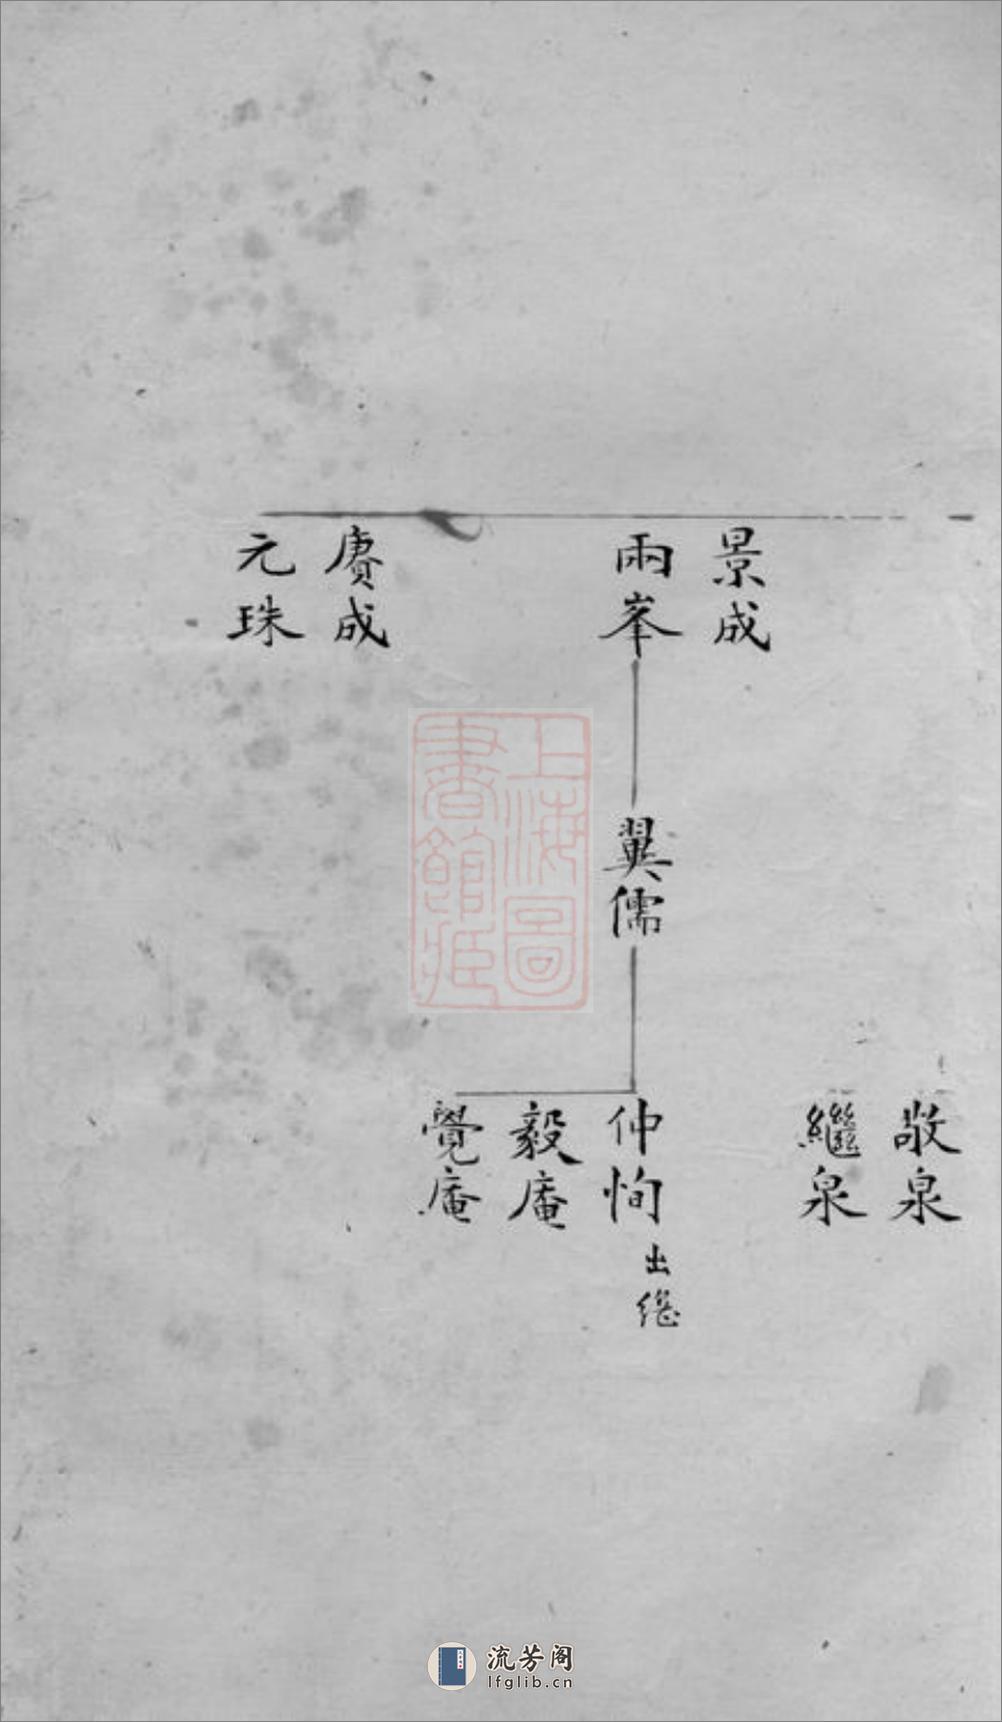 景成
兩峯
賡成
元珠
翼儒
敬泉
繼泉
仲恂
出繼
毅庵
覺庵
上海圖
書館藏
流芳阁
lfglib.cn